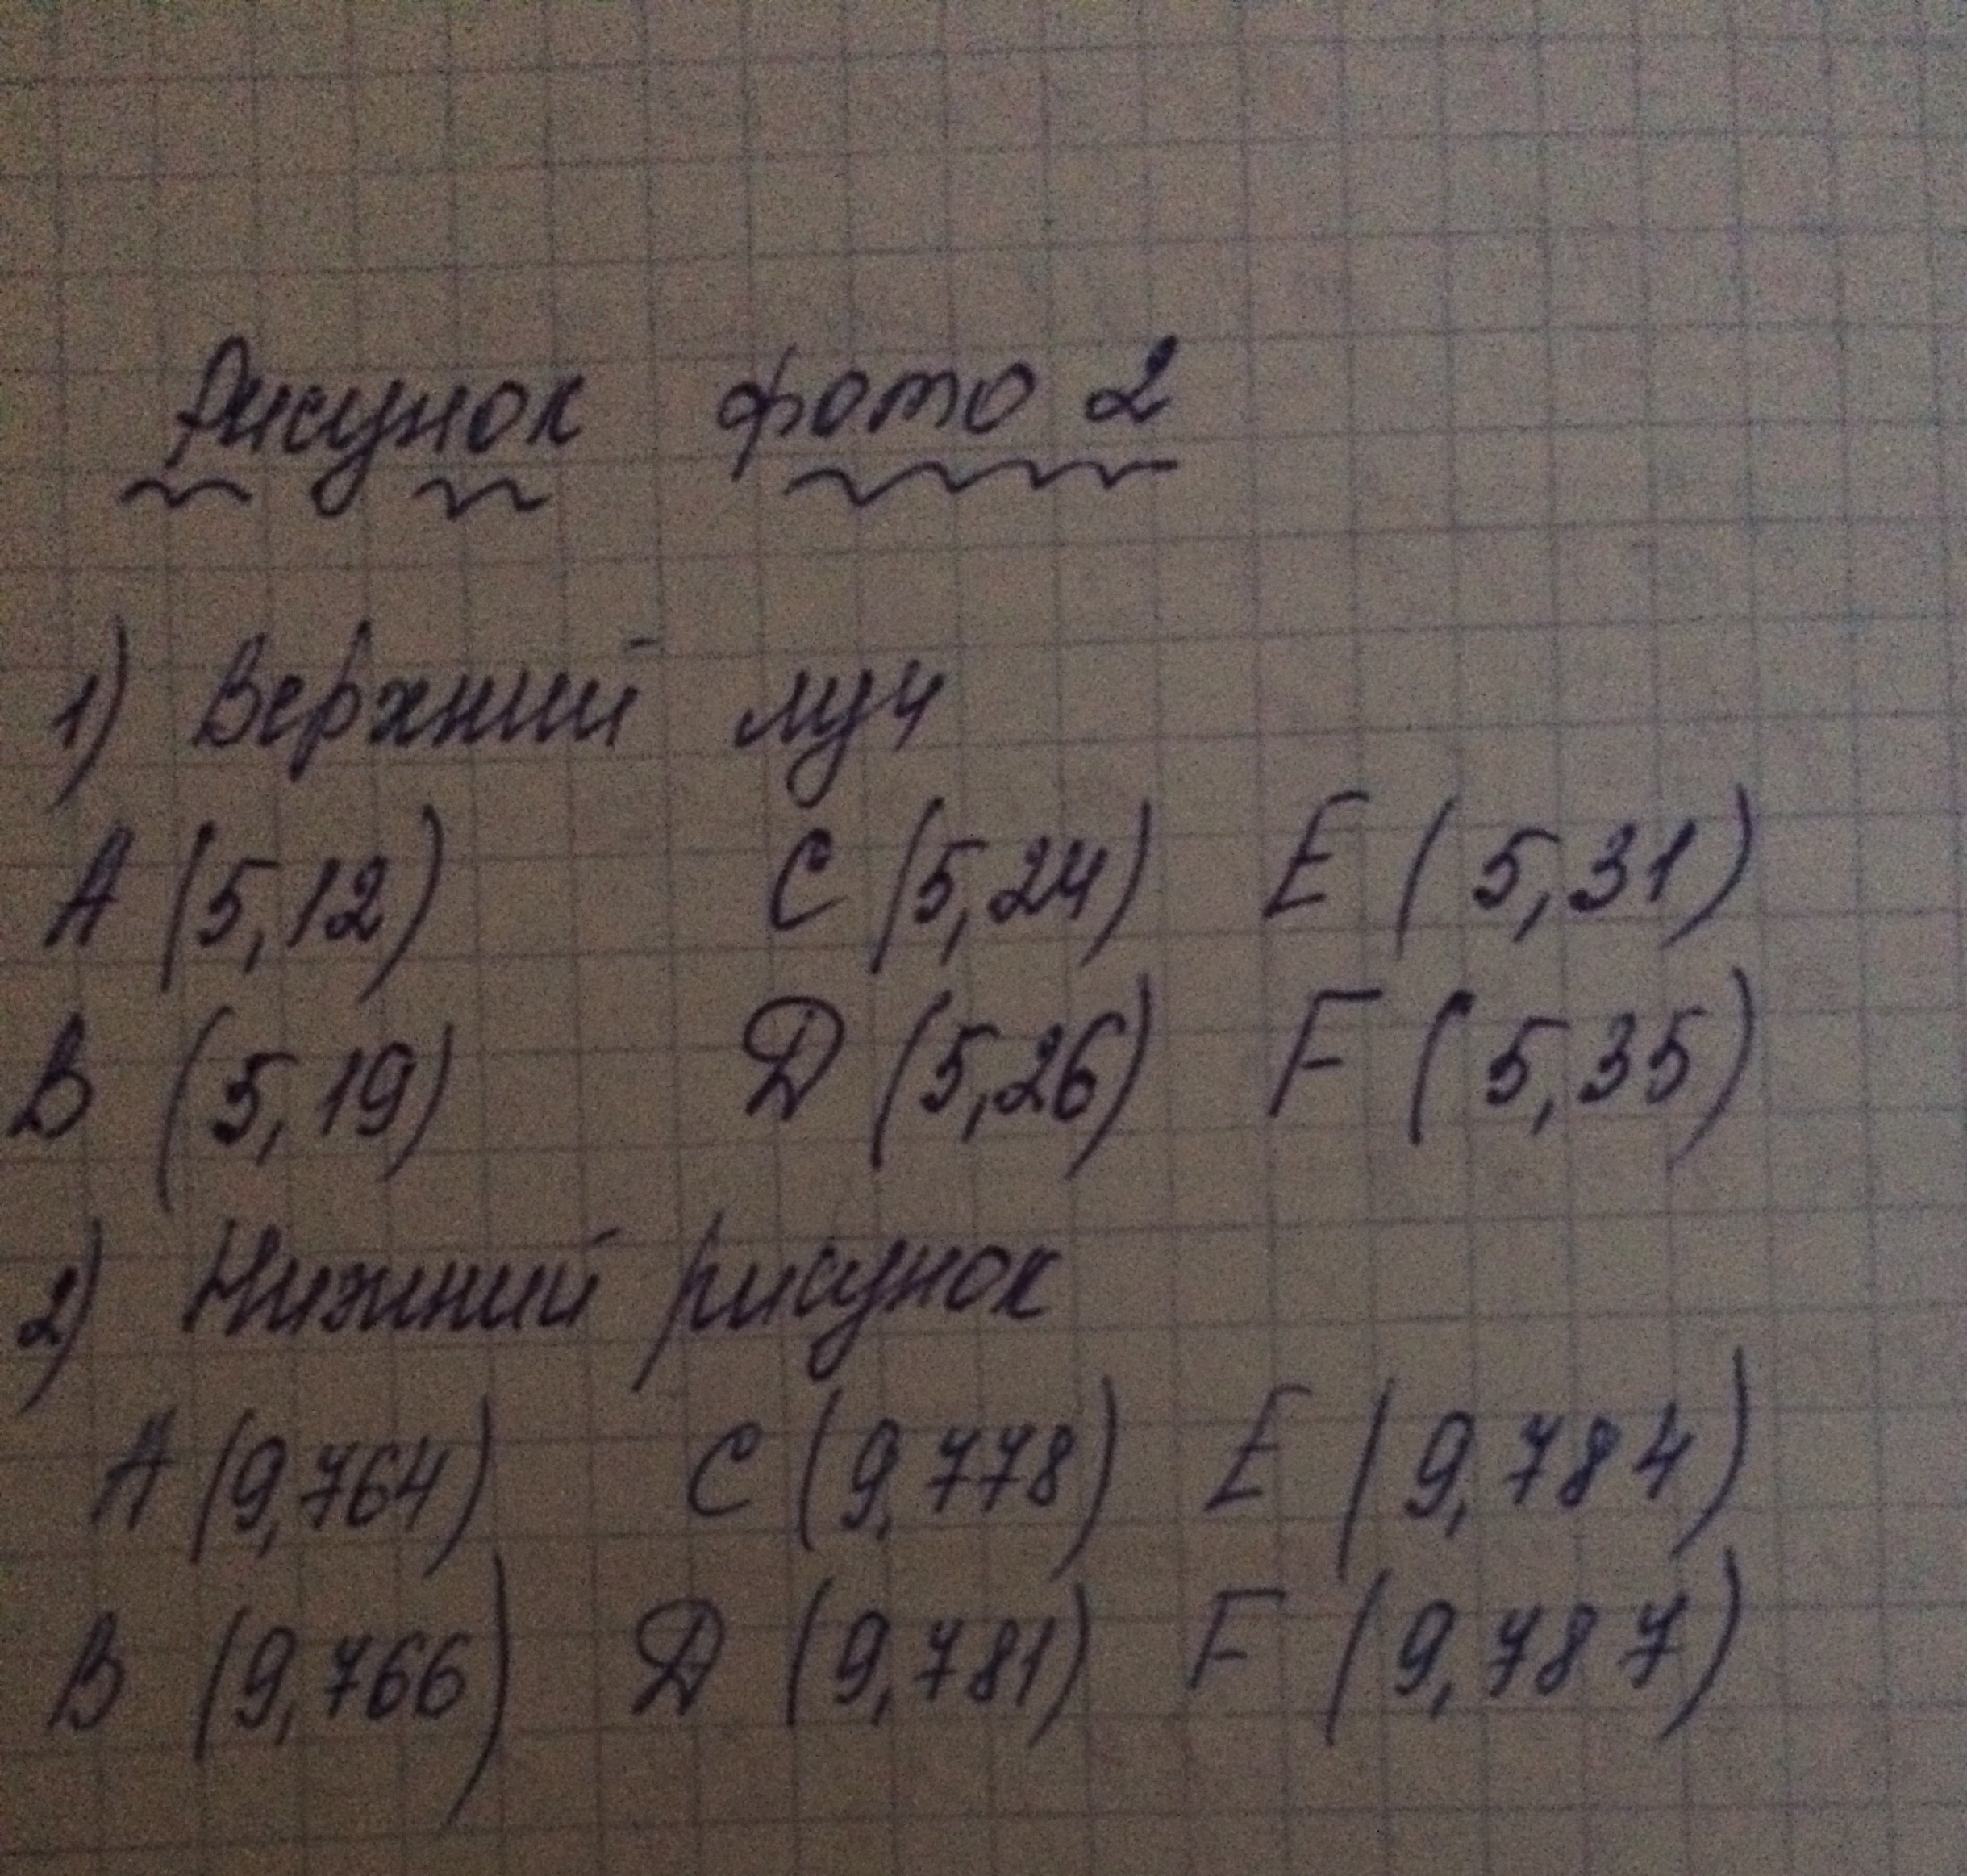 Рисунок фото 2
1) Верхний луч
A (5,12) C (5,24) E (5,31)
B (5,19) D (5,26) F (5,35)
2) Нижний рисунок
A (9,764) C (9,778) E (9,784)
B (9,766) D (9,781) F (9,787)